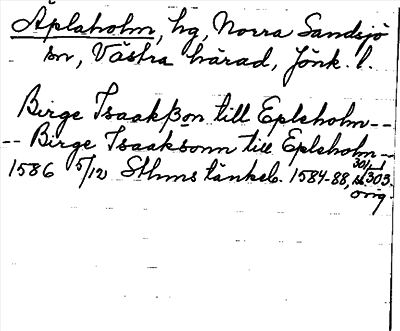 Äplaholm, hg, Norra Sandsjö
sn, Västra härad, Jönk. l.
Birge Isaakßon till Epleholm--
-- Birge Isaaksonn till Epleholm--
1586 5/12 Sthms tänkeb. 1584-88, s. 303.
orig.